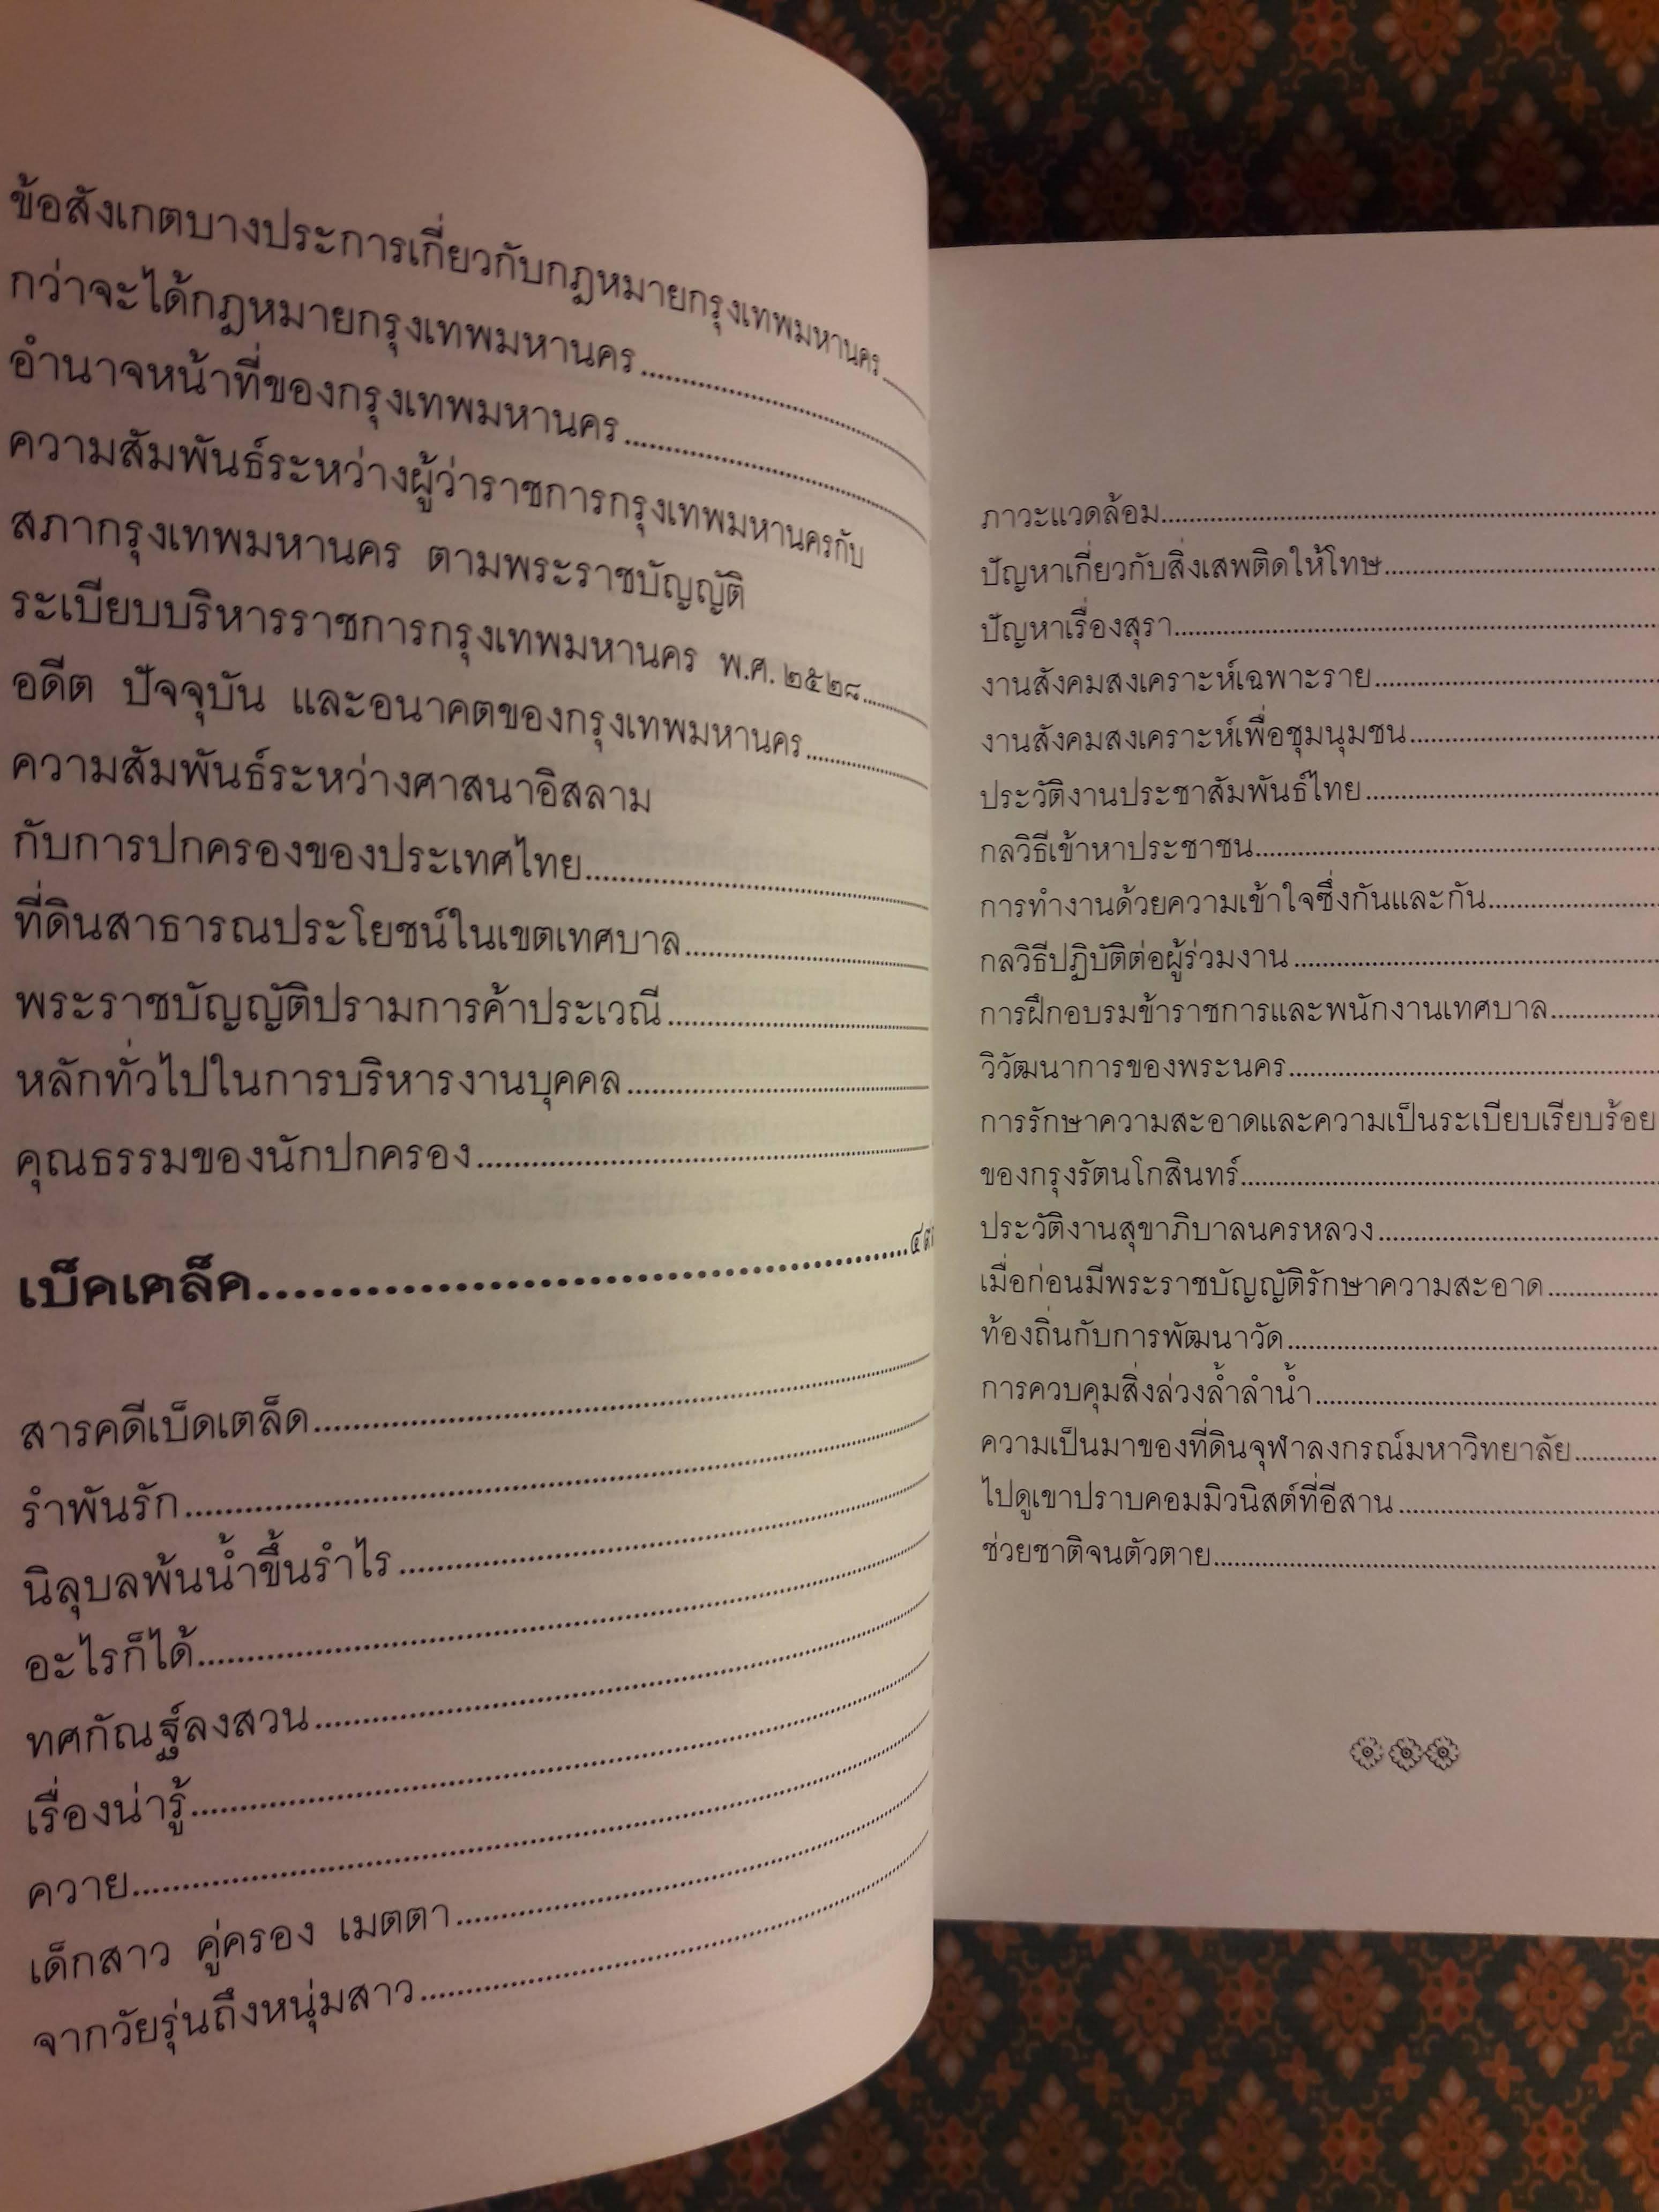 ข้อสังเกตบางประการเกี่ยวกับกฎหมายกรุงเทพมหานคร
กว่าจะได้กฎหมายกรุงเทพมหานคร
อำนาจหน้าที่ของกรุงเทพมหานคร
ความสัมพันธ์ระหว่างผู้ว่าราชการกรุงเทพมหานครกับ
สภากรุงเทพมหานคร ตามพระราชบัญญัติ
ระเบียบบริหารราชการกรุงเทพมหานคร พ.ศ. ๒๕๒๘
อดีต ปัจจุบัน และอนาคตของกรุงเทพมหานคร
ความสัมพันธ์ระหว่างศาสนาอิสลาม
กับการปกครองของประเทศไทย
ที่ดินสาธารณประโยชน์ในเขตเทศบาล
พระราชบัญญัติปรามการค้าประเวณี
หลักทั่วไปในการบริหารงานบุคคล
คุณธรรมของนักปกครอง
เบ็ดเตล็ด
สารคดีเบ็ดเตล็ด
รำพันรัก
นิลุบลพ้นน้ำขึ้นรำไร
อะไรก็ได้
ทศกัณฐ์ลงสวน
เรื่องน่ารู้
ควาย
เด็กสาว คู่ครอง เมตตา
จากวัยรุ่นถึงหนุ่มสาว
ภาวะแวดล้อม
ปัญหาเกี่ยวกับสิ่งเสพติดให้โทษ
ปัญหาเรื่องสุรา
งานสังคมสงเคราะห์เฉพาะราย
งานสังคมสงเคราะห์เพื่อชุมนุมชน
ประวัติงานประชาสัมพันธ์ไทย
กลวิธีเข้าหาประชาชน
การทำงานด้วยความเข้าใจซึ่งกันและกัน
กลวิธีปฏิบัติต่อผู้ร่วมงาน
การฝึกอบรมข้าราชการและพนักงานเทศบาล
วิวัฒนาการของพระนคร
การรักษาความสะอาดและความเป็นระเบียบเรียบร้อย
ของกรุงรัตนโกสินทร์
ประวัติงานสุขาภิบาลนครหลวง
เมื่อก่อนมีพระราชบัญญัติรักษาความสะอาด
ท้องถิ่นกับการพัฒนาวัด
การควบคุมสิ่งล่วงล้ำลำน้ำ
ความเป็นมาของที่ดินจุฬาลงกรณ์มหาวิทยาลัย
ไปดูเขาปราบคอมมิวนิสต์ที่อีสาน
ช่วยชาติจนตัวตาย